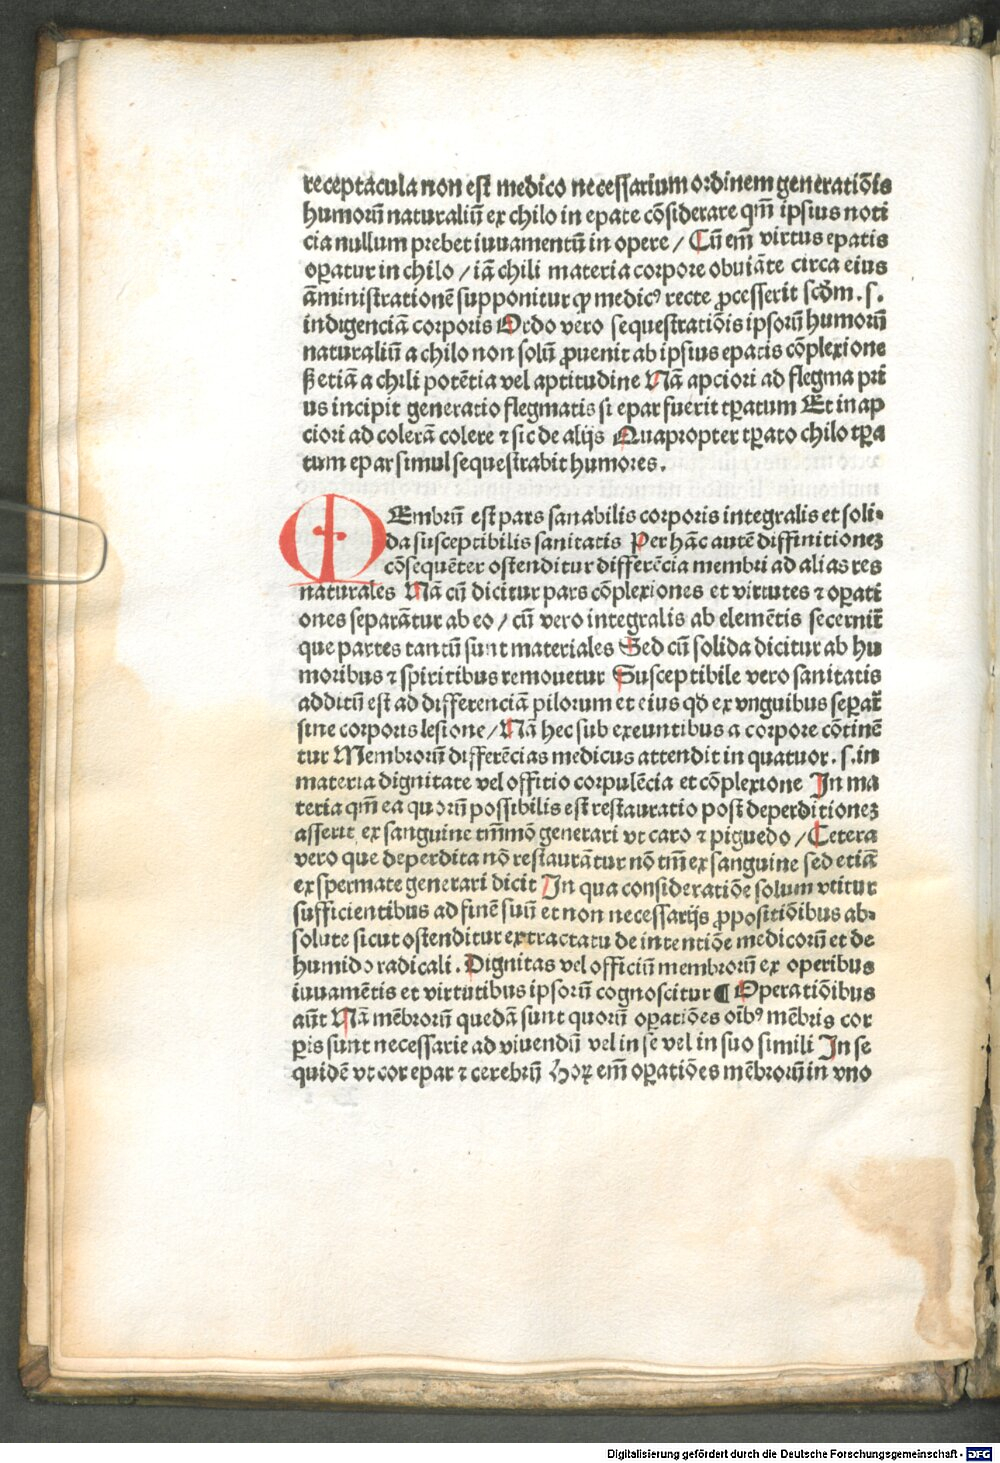 receptacula non est medico necessarium ordinem generatiōis
humorū naturaliū ex chilo in epate cōsiderare qm̄ ipsius noti
cia nullum prebet iuuamentū in opere / Cū em̄ virtus epatis
oꝑatur in chilo / iā chili materia corpore obuiāte circa eius
āministrationē supponitur ꝙ medicꝰ recte ꝓcesserit scdm̄ . s .
indigenciā corporis Ordo vero sequestratiōis ipsorū humorū
naturaliū a chilo non solū ꝓuenit ab ipsius epatis cōplexione
ꝭetiā a chili potētia vel aptitudine Nā apciori ad flegma pri
us incipit generatio flegmatis si epar fuerit tꝑatum Et in ap
ciori ad colerā colere ⁊ sic de alijs Quapropter tꝑato chilo tꝑa
tum epar simul sequestrabit humores .
MEmbrū est pars sanabilis corporis integralis et soli-
da susceptibilis sanitatis Per hāc autē diffinitionez
cōsequēter ostenditur differēcia membri ad alias res
naturales Nā cū dicitur pars cōplexiones et virtutes ⁊ oꝑati
ones separātur ab eo / cū vero integralis ab elemētis secernit̄
que partes tantū sunt materiales Sed cū solida dicitur ab hu
moribus ⁊ spiritibus remouetur Susceptibile vero sanitatis
additū est ad differenciā pilorum et eius qd̄ ex vnguibus seꝑat̄
sine corporis lesione / Nā hec sub exeuntibus a corpore cōtinē
tur Membrorū differēcias medicus attendit in quatuor . s . in
materia dignitate vel offitio corpulēcia et cōplexione In ma
teria qm̄ ea quorū possibilis est restauratio post deperditionez
asserit ex sanguine tm̄mō generari vt caro ⁊ piguedo / Cetera
vero que deperdita nō restaurātur nō tm̄ ex sanguine sed etiā
ex spermate generari dicit In qua consideratiōe solum vtitur
sufficientibus ad finē suū et non necessarijs ꝓpositiōibus ab-
solute sicut ostenditur ex tractatu de intentiōe medicorū et de
humido radicali . Dignitas vel officiū membrorū ex operibus
iuuamētis et virtutibus ipsorū cognoscitur ¶ Operatiōibus
aūt Nā mēbrorū quedā sunt quorū oꝑatiōes oībꝰ mēbris cor
ꝑis sunt necessarie ad viuendū vel in se vel in suo simili In se
quidē vt cor epar ⁊ cerebrū Hoꝝ em̄ oꝑatiōes mēbrorū in vno
Digitalisierung gefördert durch die Deutsche Forschungsgemeinschaft - DFG